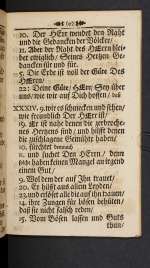 10. Der HErr wendet den Raht
und die Gedancken der Völcker/
11. Aber der Raht des HErrn blei-
bet ewiglich/ Seines Hertzen Ge-
dancken für und für.
5. Die Erde ist voll der Güte Des
HErrn/
22: Deine Güte/ HErr/ sey über
uns/ wie wir auf Dich hoffen/
XXXIV. 9. wie es schmecken und sehen/
wie freundlich Der HErr ist/
19. ist nahe denen die zerbroche-
nes Hertzens sind/ und hilfft denen
die zerschlagene Gemühte haben/
10. fürchtet dennoch
11. und suchet Den HErrn/ denn
die haben keinen Mangel an irgend
einem Gut/
9. Wol dem der auf Ihn trauet/
20. Er hilfft aus allem Leyden/
23. und erlöset alle die auf ihn hauen/
14. ihre Zungen für bösen behüten/
daß sie nicht falsch reden/
15. Vom Bösen lassen und Guts
thun/